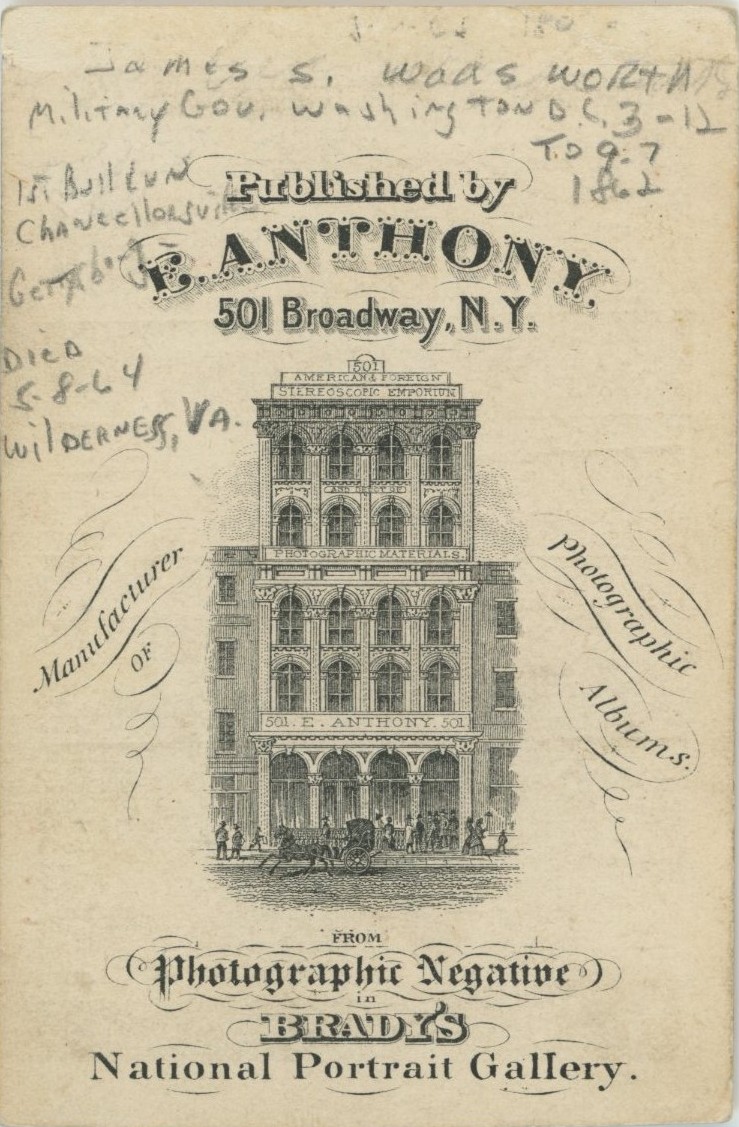 James S. Wadsworth
Military Gov. Washington D.C. 3-12
TO 9-7
1862
1st Bull Run
Chancellorsville
Gettysburg
Died
5-8-64
Wilderness, VA.
Published by
E. ANTHONY
501 Broadway, N.Y.
501
AMERICAN & FOREIGN
STEREOSCOPIC EMPORIUM
PHOTOGRAPHIC MATERIALS
501. E. ANTHONY. 501
Manufacturer
OF
Photographic
Albums.
FROM
Photographic Negative
in
BRADY'S
National Portrait Gallery.